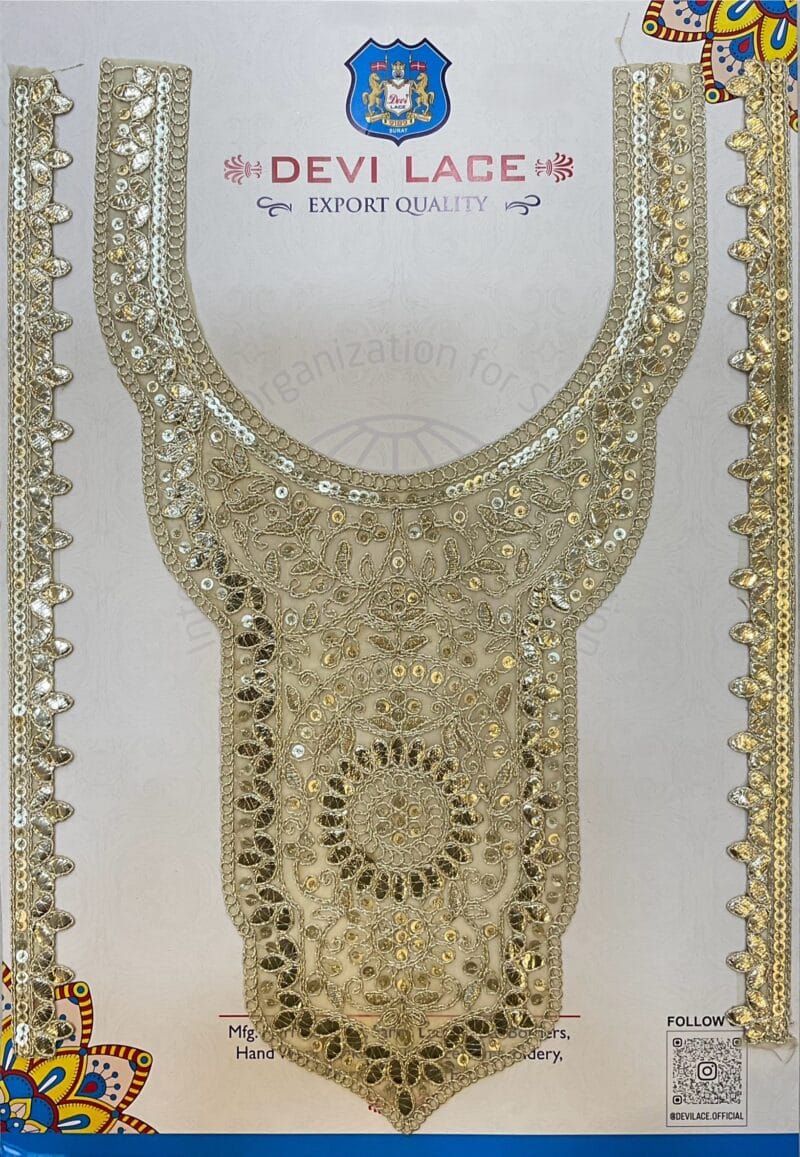 Devi
LACE
SURAT
DEVI LACE
EXPORT QUALITY
Organization for S
Int
tion
Mfg.
ers,
Hand
dery,
FOLLOW
@DEVILACE.OFFICIAL